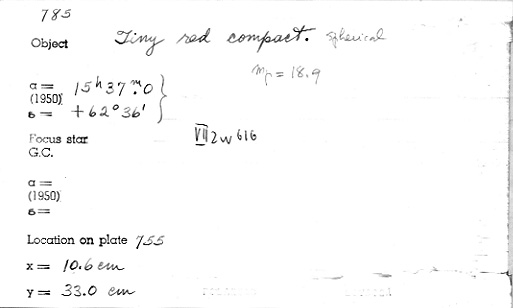 785
Object Tiny red compact. spherical
mp = 18.9
α = 15h 37m.0
(1950)
δ = +62° 36'
Focus star VII Zw 616
G.C.
α =
(1950)
δ =
Location on plate 755
x = 10.6 cm
y = 33.0 cm